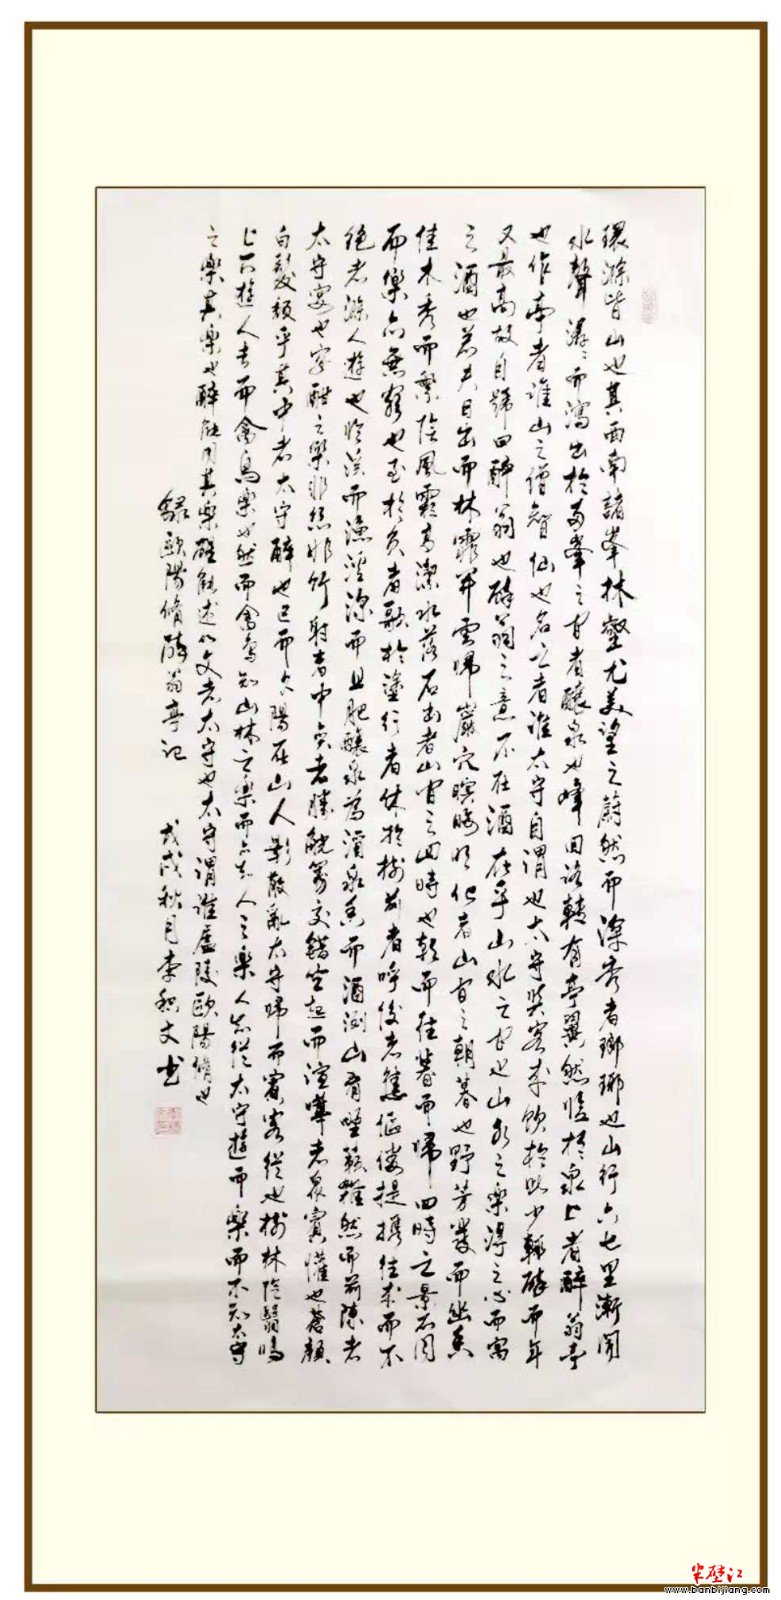 環滁皆山也其西南諸峯林壑尤美望之蔚然而深秀者瑯琊也山行六七里漸聞
水聲潺〻而瀉出於兩峯之者釀泉也峰回路轉有亭翼然臨於泉上者醉翁亭
也作亭者誰山之僧智仙也名之者誰太守自謂也太守與客來飲於此少輒醉而年
又最高故自號曰醉翁也醉翁之意不在酒在乎山水之也山水之樂得之心而寓
之酒也若夫日出而林霏開雲歸巖穴暝晦化者山間之朝暮也野芳發而幽香
佳木秀而繁陰風霜高潔水落石出者山間之四時也朝而往暮而歸四時之景不同
而樂亦無窮也至於負者歌於塗行者休於樹前者呼後者應傴僂提攜往來而不
絕者滁人遊也臨溪而漁溪深而且肥釀泉為酒泉香而酒洌山肴野蔌雜然而前陳者
太守宴也宴酣之樂非絲非竹射者中弈者勝觥籌交錯坐起而諠嘩者眾賓懽也蒼顏
白髮頹乎其中者太守醉也已而夕陽在山人影散亂太守歸而賓客從也樹林陰翳鳴
上下遊人去而禽鳥樂也然而禽鳥知山林之樂而不知人之樂人知從太守遊而樂而不知太守
之樂其樂也醉能同其樂醒能述以文者太守也太守謂誰廬陵歐陽脩也
錄歐陽脩醉翁亭記 戊戌秋月李文書
半壁江
www.banbijiang.com